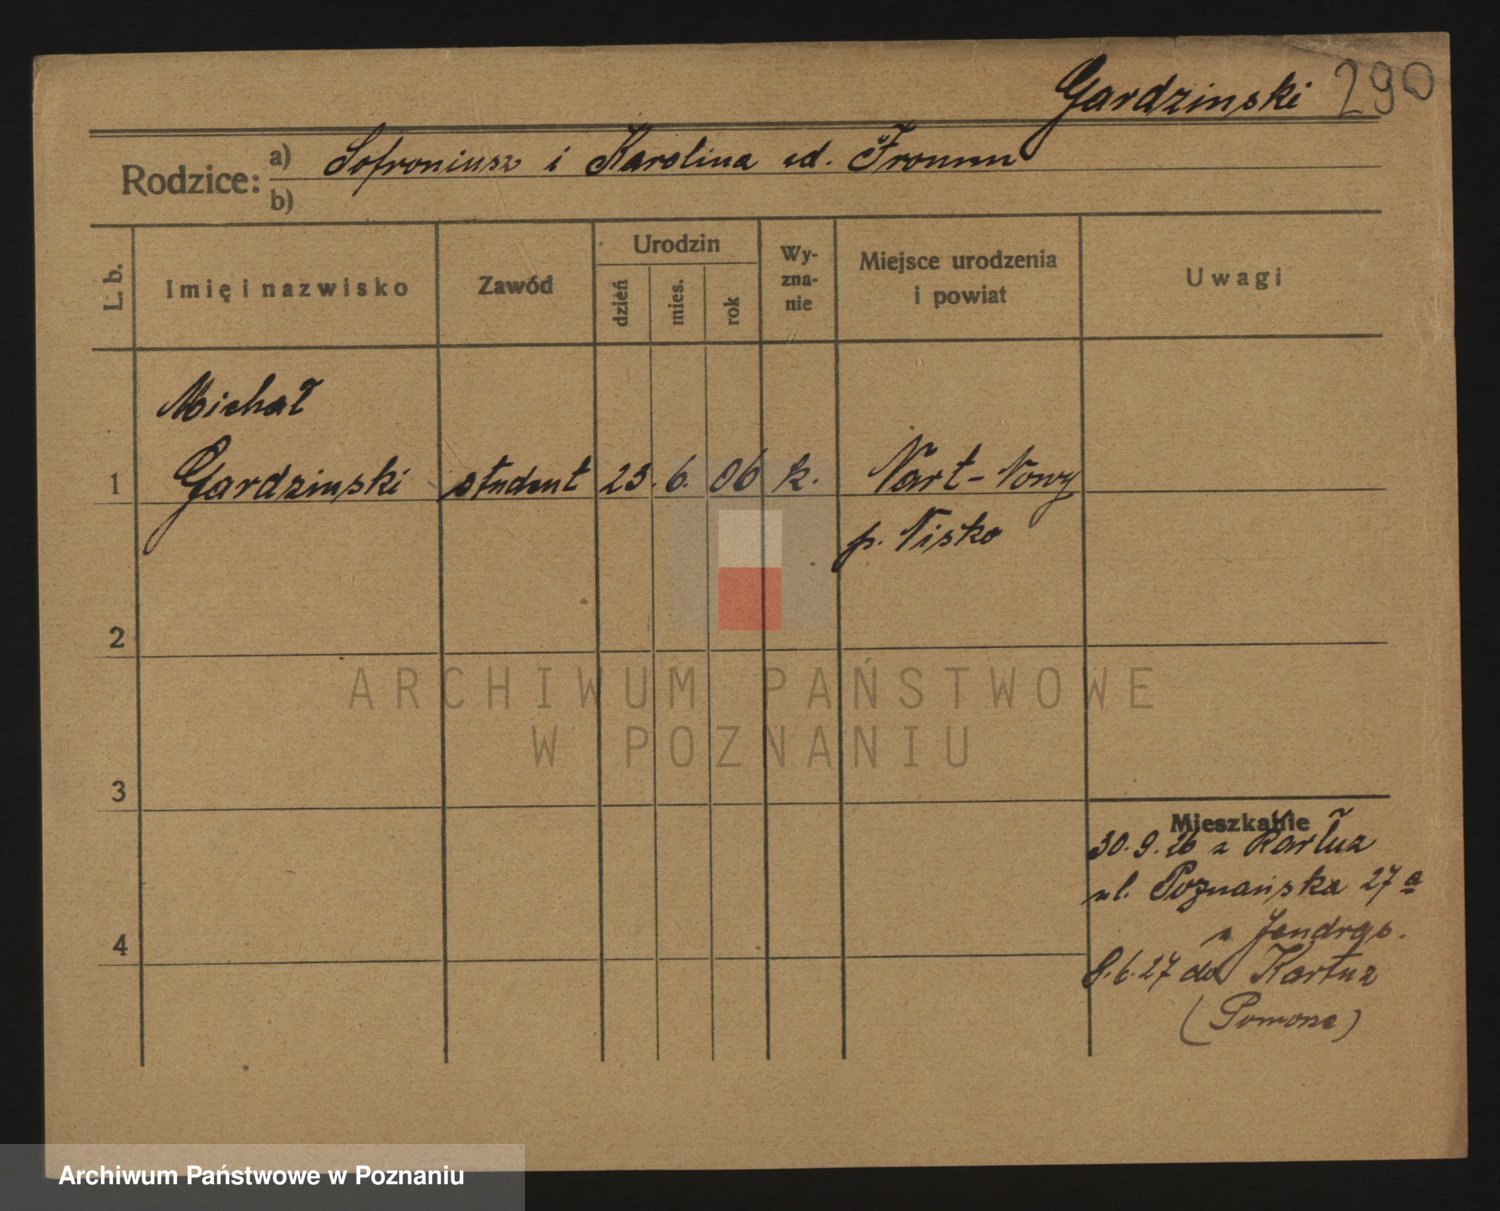 Gardzinski 290
Rodzice: a) Sofroniusz i Karolina
b)
L. b. Imię i nazwisko Zawód Urodzin dzień mies. rok Wy-zna-nie Miejsce urodzenia i powiat Uwagi
Michał
1 Gardzinski student 23. 6. 06 k. Nart-Nowy
p. Nisko
2
ARCHIWUM PAŃSTWOWE
W POZNANIU
3
Mieszkanie
30.9.26 z Kartuz
ul. Poznańska 27a
4
8.6.27 do Kartuz
Archiwum Państwowe w Poznaniu